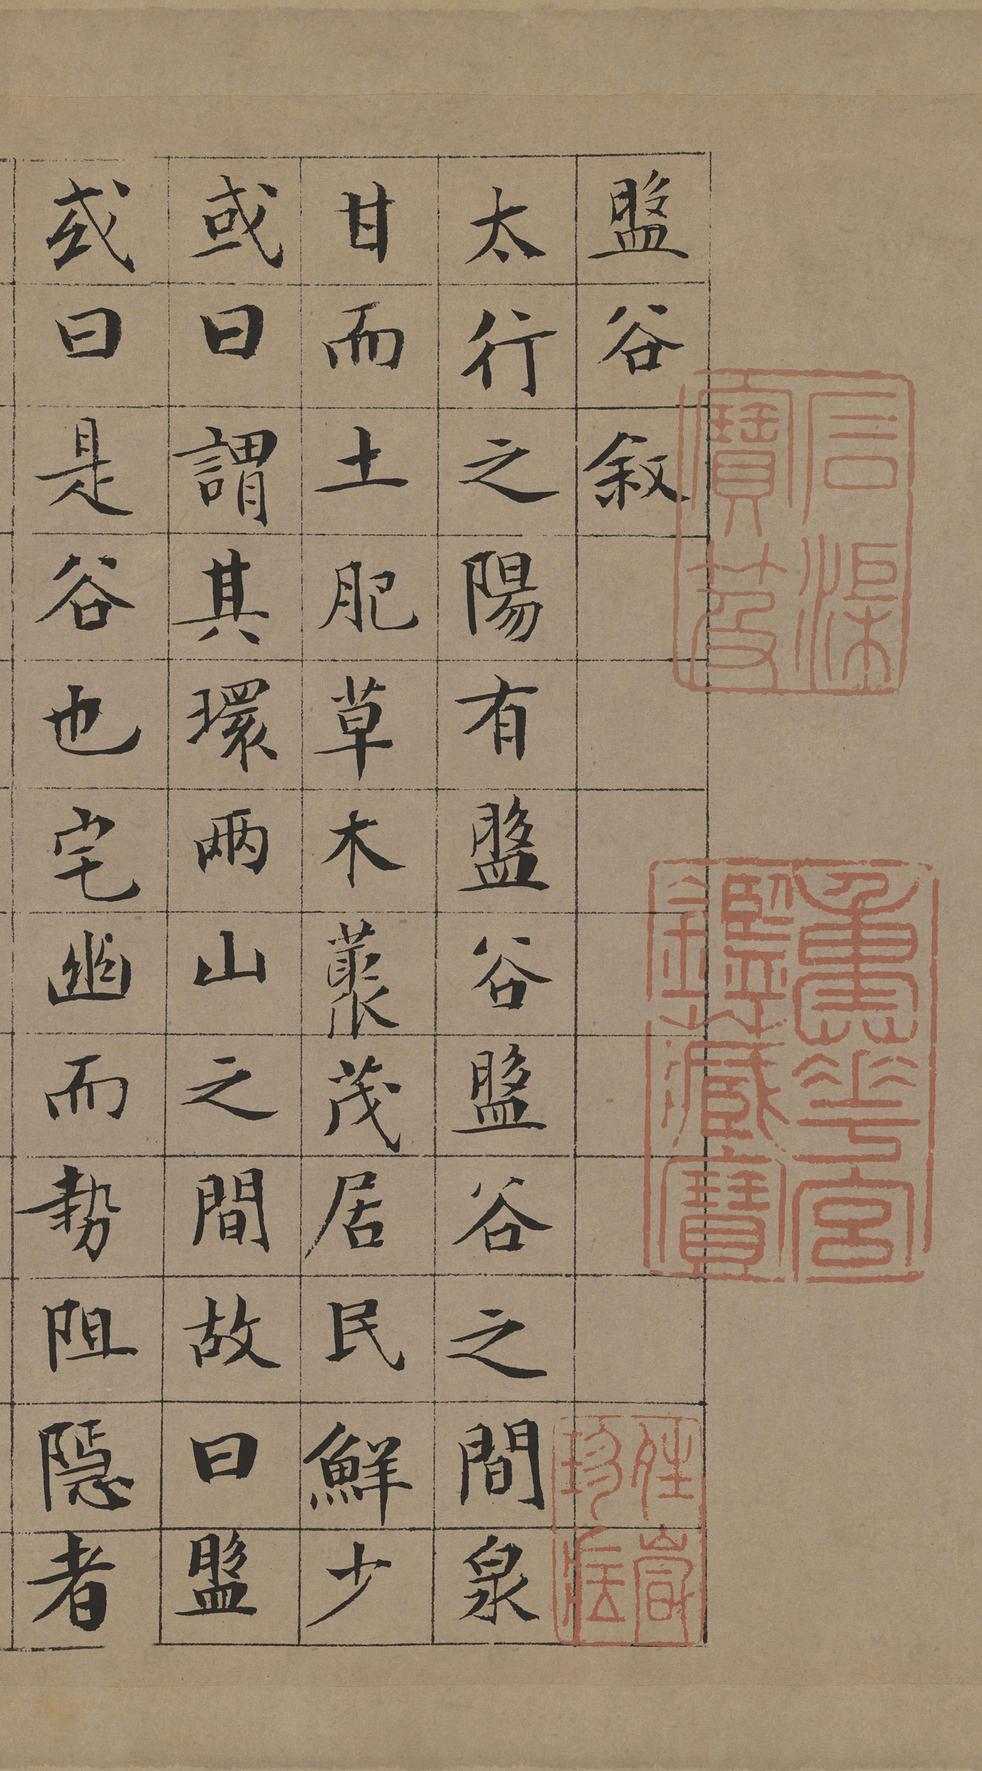 石渠寶笈
重華宮鑑藏寶
盤谷敘
太行之陽有盤谷盤谷之間泉
甘而土肥草木藂茂居民鮮少
或曰謂其環兩山之間故曰盤
或曰是谷也宅幽而勢阻隱者